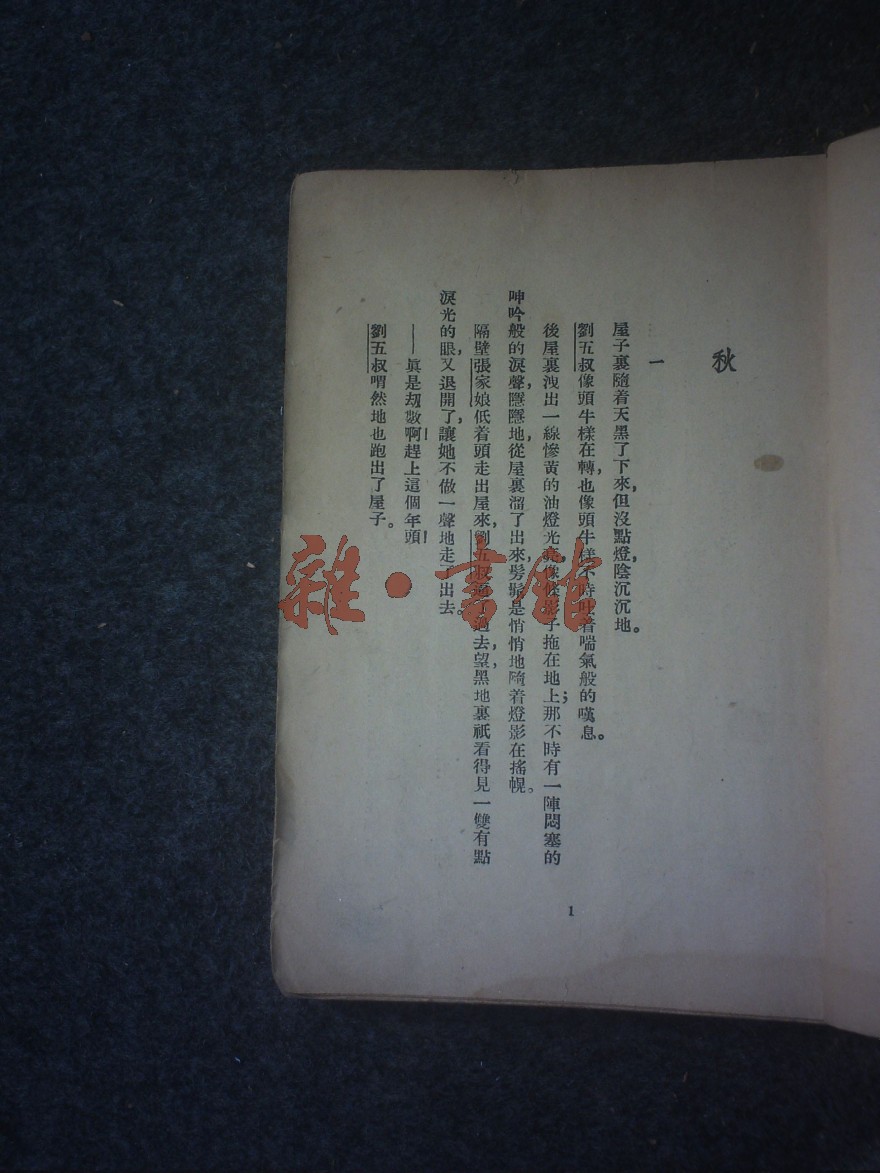 秋
一
屋子裏隨着天黑了下來，但沒點燈，陰沉沉地。
劉五叔像頭牛樣在轉，也像頭牛樣不時吐着喘氣般的嘆息。
後屋裏洩出一線慘黃的油燈光亮，像條影子拖在地上；那不時有一陣悶塞的
呻吟般的淚聲，隱隱地，從屋裏溜了出來，髣髴是悄悄地隨着燈影在搖幌。
隔壁張家娘低着頭走出屋來，劉五叔過去，望，黑地裏祇看得見一雙有點
淚光的眼，又退開了，讓她不做一聲地走了出去。
——眞是刼數啊！趕上這個年頭！
劉五叔喟然地也跑出了屋子。
1
雜·書館